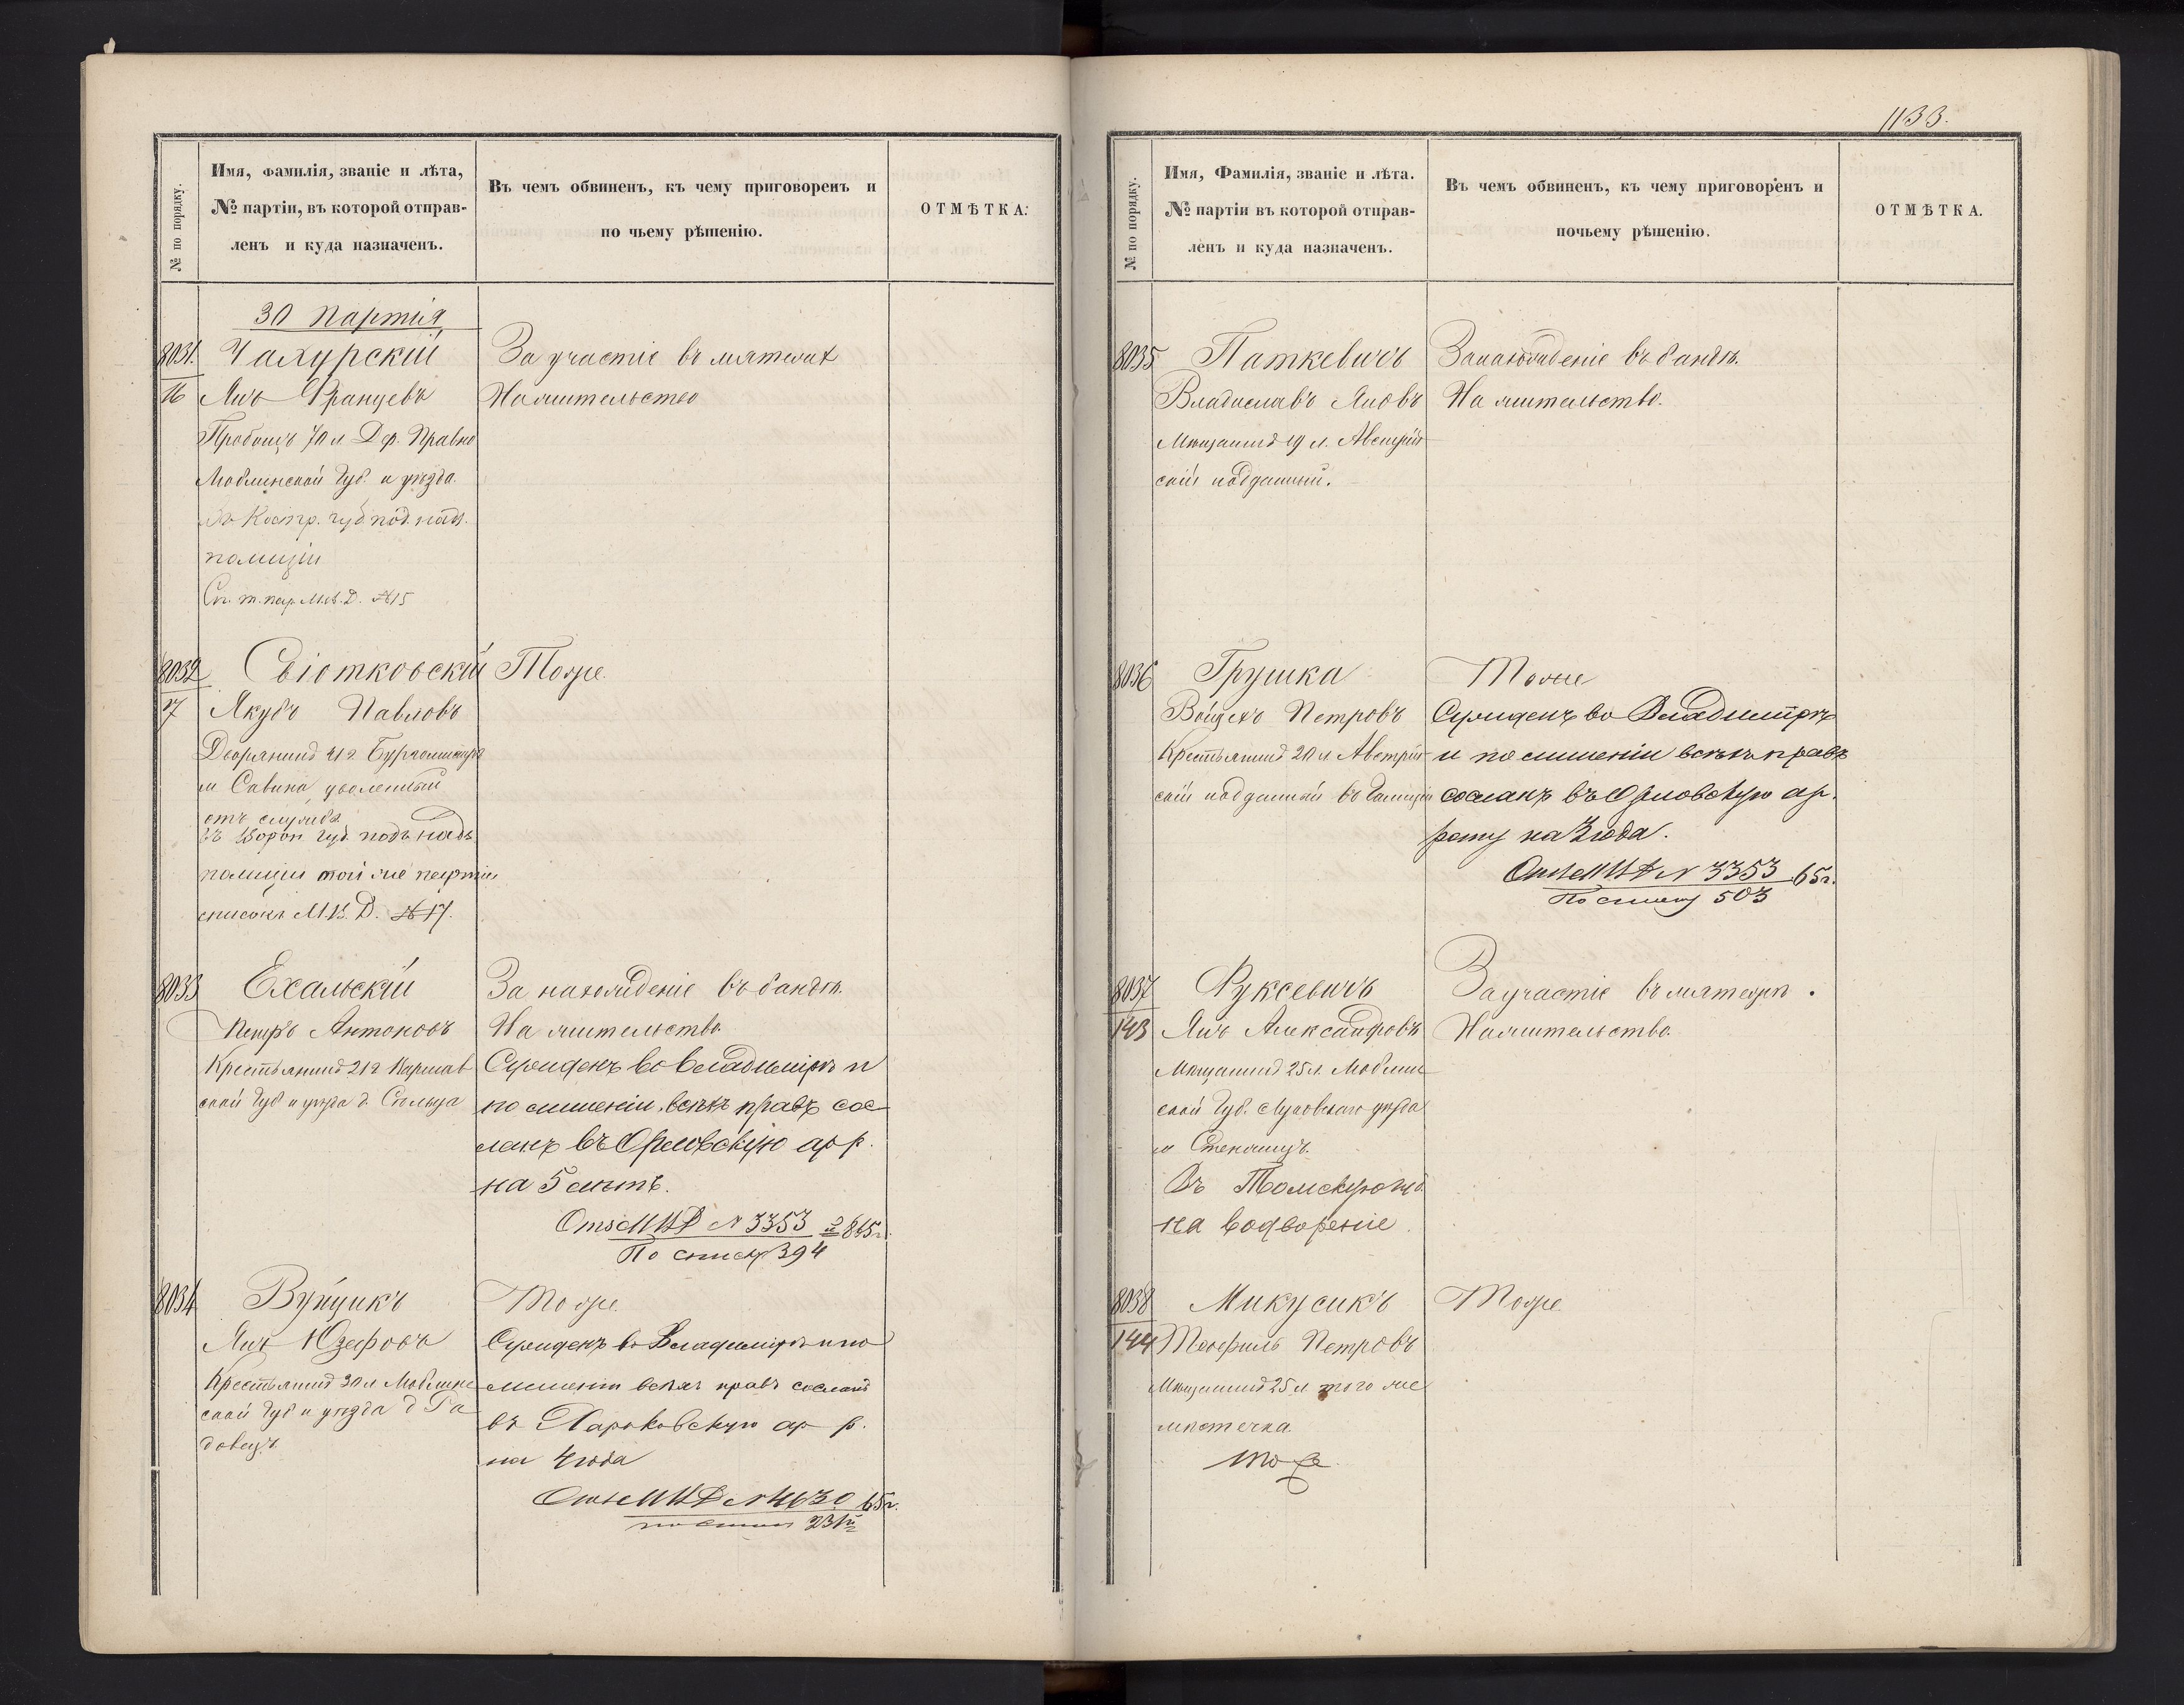 № по порядку.
Имя, фамилія, званіе и лѣта,
№ партіи, въ которой отправ-
ленъ и куда назначенъ.
Въ чемъ обвиненъ, къ чему приговоренъ и
по чьему рѣшенію.
ОТМѢТКА.
30 партія
8031.
16
Чахурскій
Янъ Францевъ
Пробощъ 70 л
Люблинской Губ. и уѣзда.
Въ Костр. губ под. надз.
полиціи
№15
За участіе въ мятежѣ
На жительство
8032
17
Свіотковскій
Якубъ Павловъ
Дворянинъ 41 г. Бургомистръ
м Савина уволенный
отъ службы
Въ Ворон губ. подъ надз
полиціи той же партіи
списокъ М.В.Д. №17.
Тоже.
8033
Ехальскій
Петръ Антоновъ
Крестьянинъ 21 г Варшав
ской Губ и уѣзда д.
За нахожденіе въ бандѣ.
На жительство.
Сужденъ во Владимірѣ и
по лишеніи всѣхъ правъ сос-
ланъ въ Орловскую ар р.
на 5 лѣтъ.
Отн МВД № 3353 865 г.
По списку 394
8034
Вуйцикъ
Янъ Юзефовъ
Крестьянинъ 30 л Люблин
ской Губ и уѣзда д Ра
довецъ.
Тоже.
Сужденъ во Владимірѣ и по
лишеніи всѣхъ правъ сосланъ
въ Харьковскую ар р.
на 4 года
Отн МВД № 4630 65 г.
по списку 231
1133.
№ по порядку.
Имя, Фамилія, званіе и лѣта.
№ партіи въ которой отправ-
ленъ и куда назначенъ.
Въ чемъ обвиненъ, къ чему приговоренъ и
почьему рѣшенію.
ОТМѢТКА.
8035
Паткевичъ
Владиславъ Яновъ
Мѣщанинъ 19 л. Австрій
скій подданный.
За нахожденіе въ бандѣ.
На жительство.
8036
Грушка
Войцехъ Петровъ
Крестьянинъ 20 л. Австрій
скій подданный въ Галиціи
Тоже
Сужденъ во Владимірѣ
и по лишеніи всѣхъ правъ
сосланъ въ Орловскую ар.
роту на 3 года.
Отн МВД № 3353 65 г.
По списку 503
8037
143
Руксевичъ
Янъ Александровъ
Мѣщанинъ 25 л. Люблин
ской Губ. Луковскаго уѣзда
м
Въ Томскую губ.
на водвореніе.
За участіе въ мятежѣ.
На жительство.
8038
144
Микусикъ
Теофиль Петровъ
Мѣщанинъ 25 л того же
мѣстечка.
тоже.
Тоже.